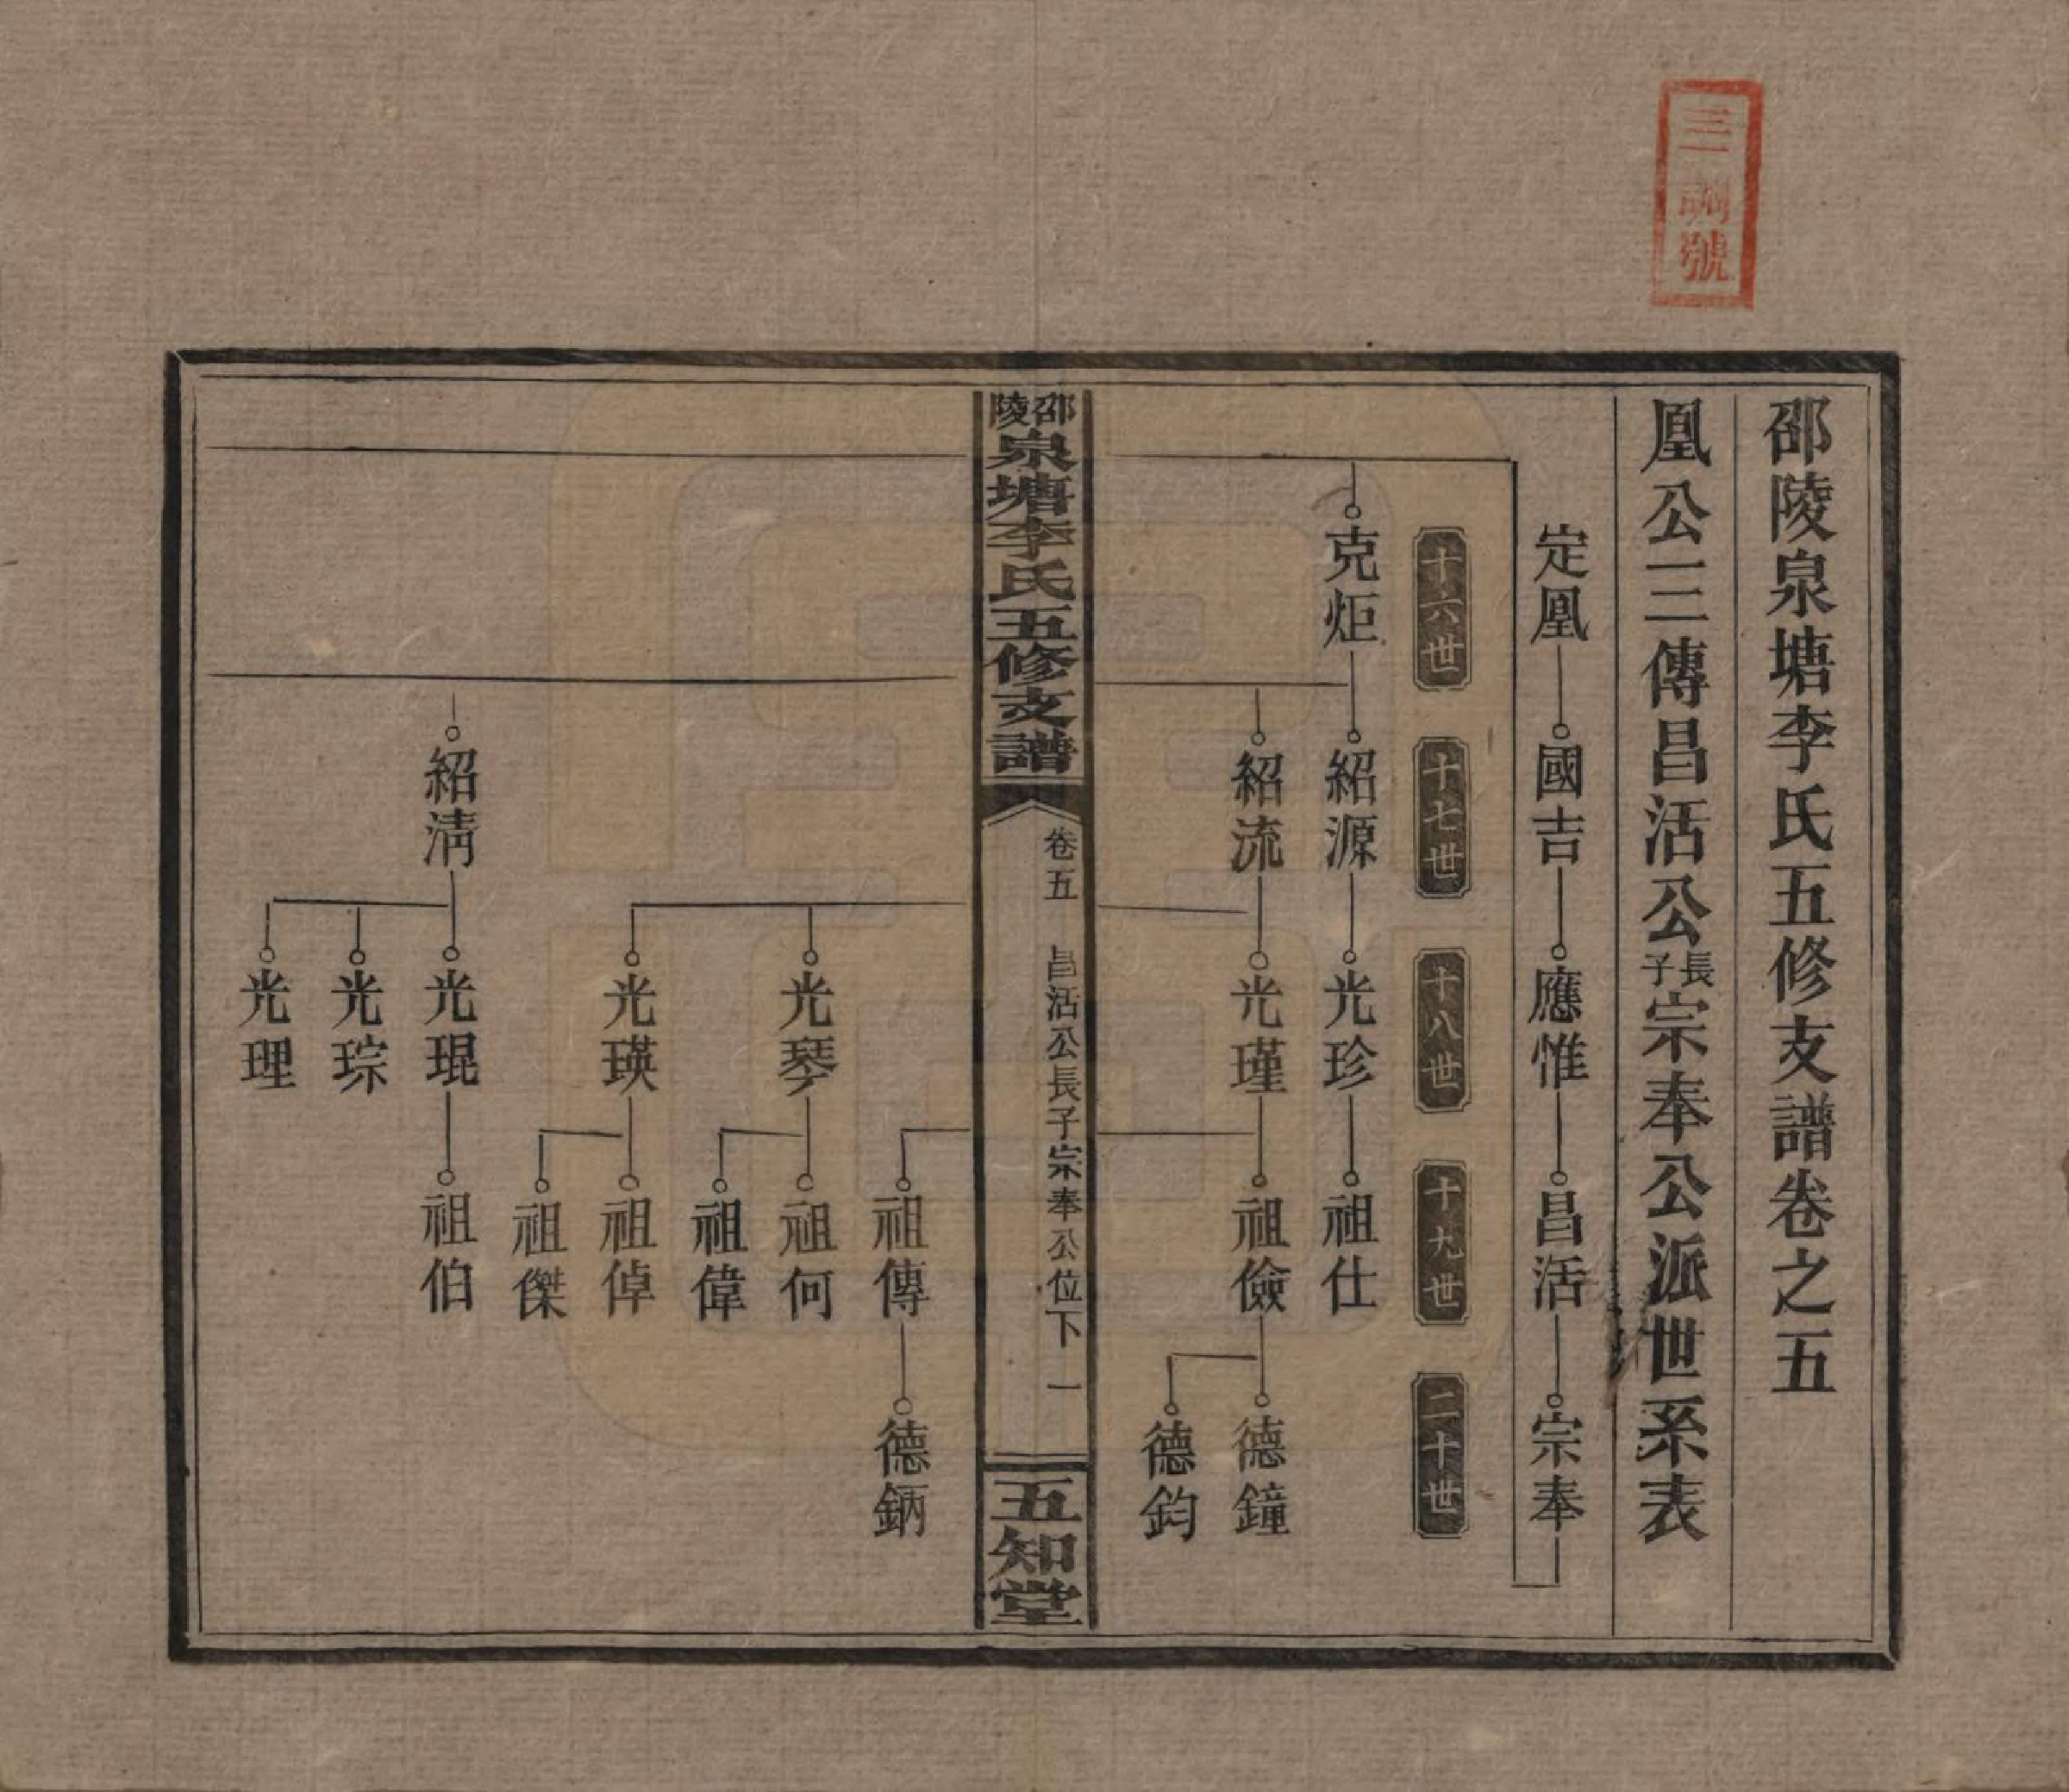 三調號
邵陵泉塘李氏五修支譜卷之五
凰公三傳昌活公長子宗奉公派世系表
定凰 國吉 應惟 昌活 宗奉
十六世 十七世 十八世 十九世 二十世
克炬 紹源 光珍 祖仕
紹流 光瑾 祖儉 德鐘
德鈞
邵陵泉塘李氏五修支譜 卷五 昌活公長子宗奉公位下 一 五知堂
祖傳 德鈵
光琴 祖何
祖偉
光瑛 祖倬
祖傑
紹淸 光琨 祖伯
光琮
光理